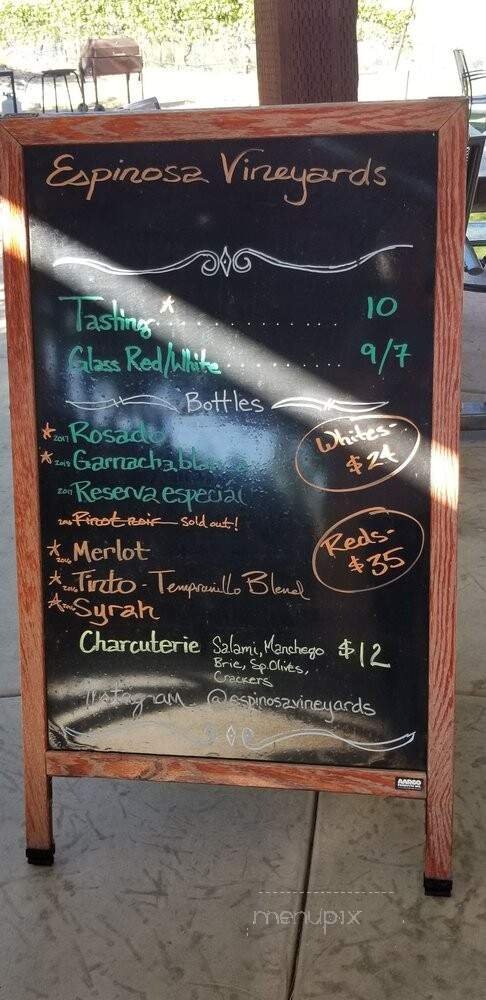 Espinosa Vineyards
Tasting* .......... 10
Glass Red/White .......... 9/7
Bottles
* 2017 Rosado
* 2018 Garnacha blanca
2017 Reserva especial
Pinot noir - sold out!
* 2016 Merlot
* 2016 Tinto - Tempranillo Blend
* 2016 Syrah
Whites-
$24
Reds-
$35
Charcuterie Salami, Manchego $12
Brie, Sp. Olives,
Crackers
Instagram @espinosavineyards
AARCO
menupix